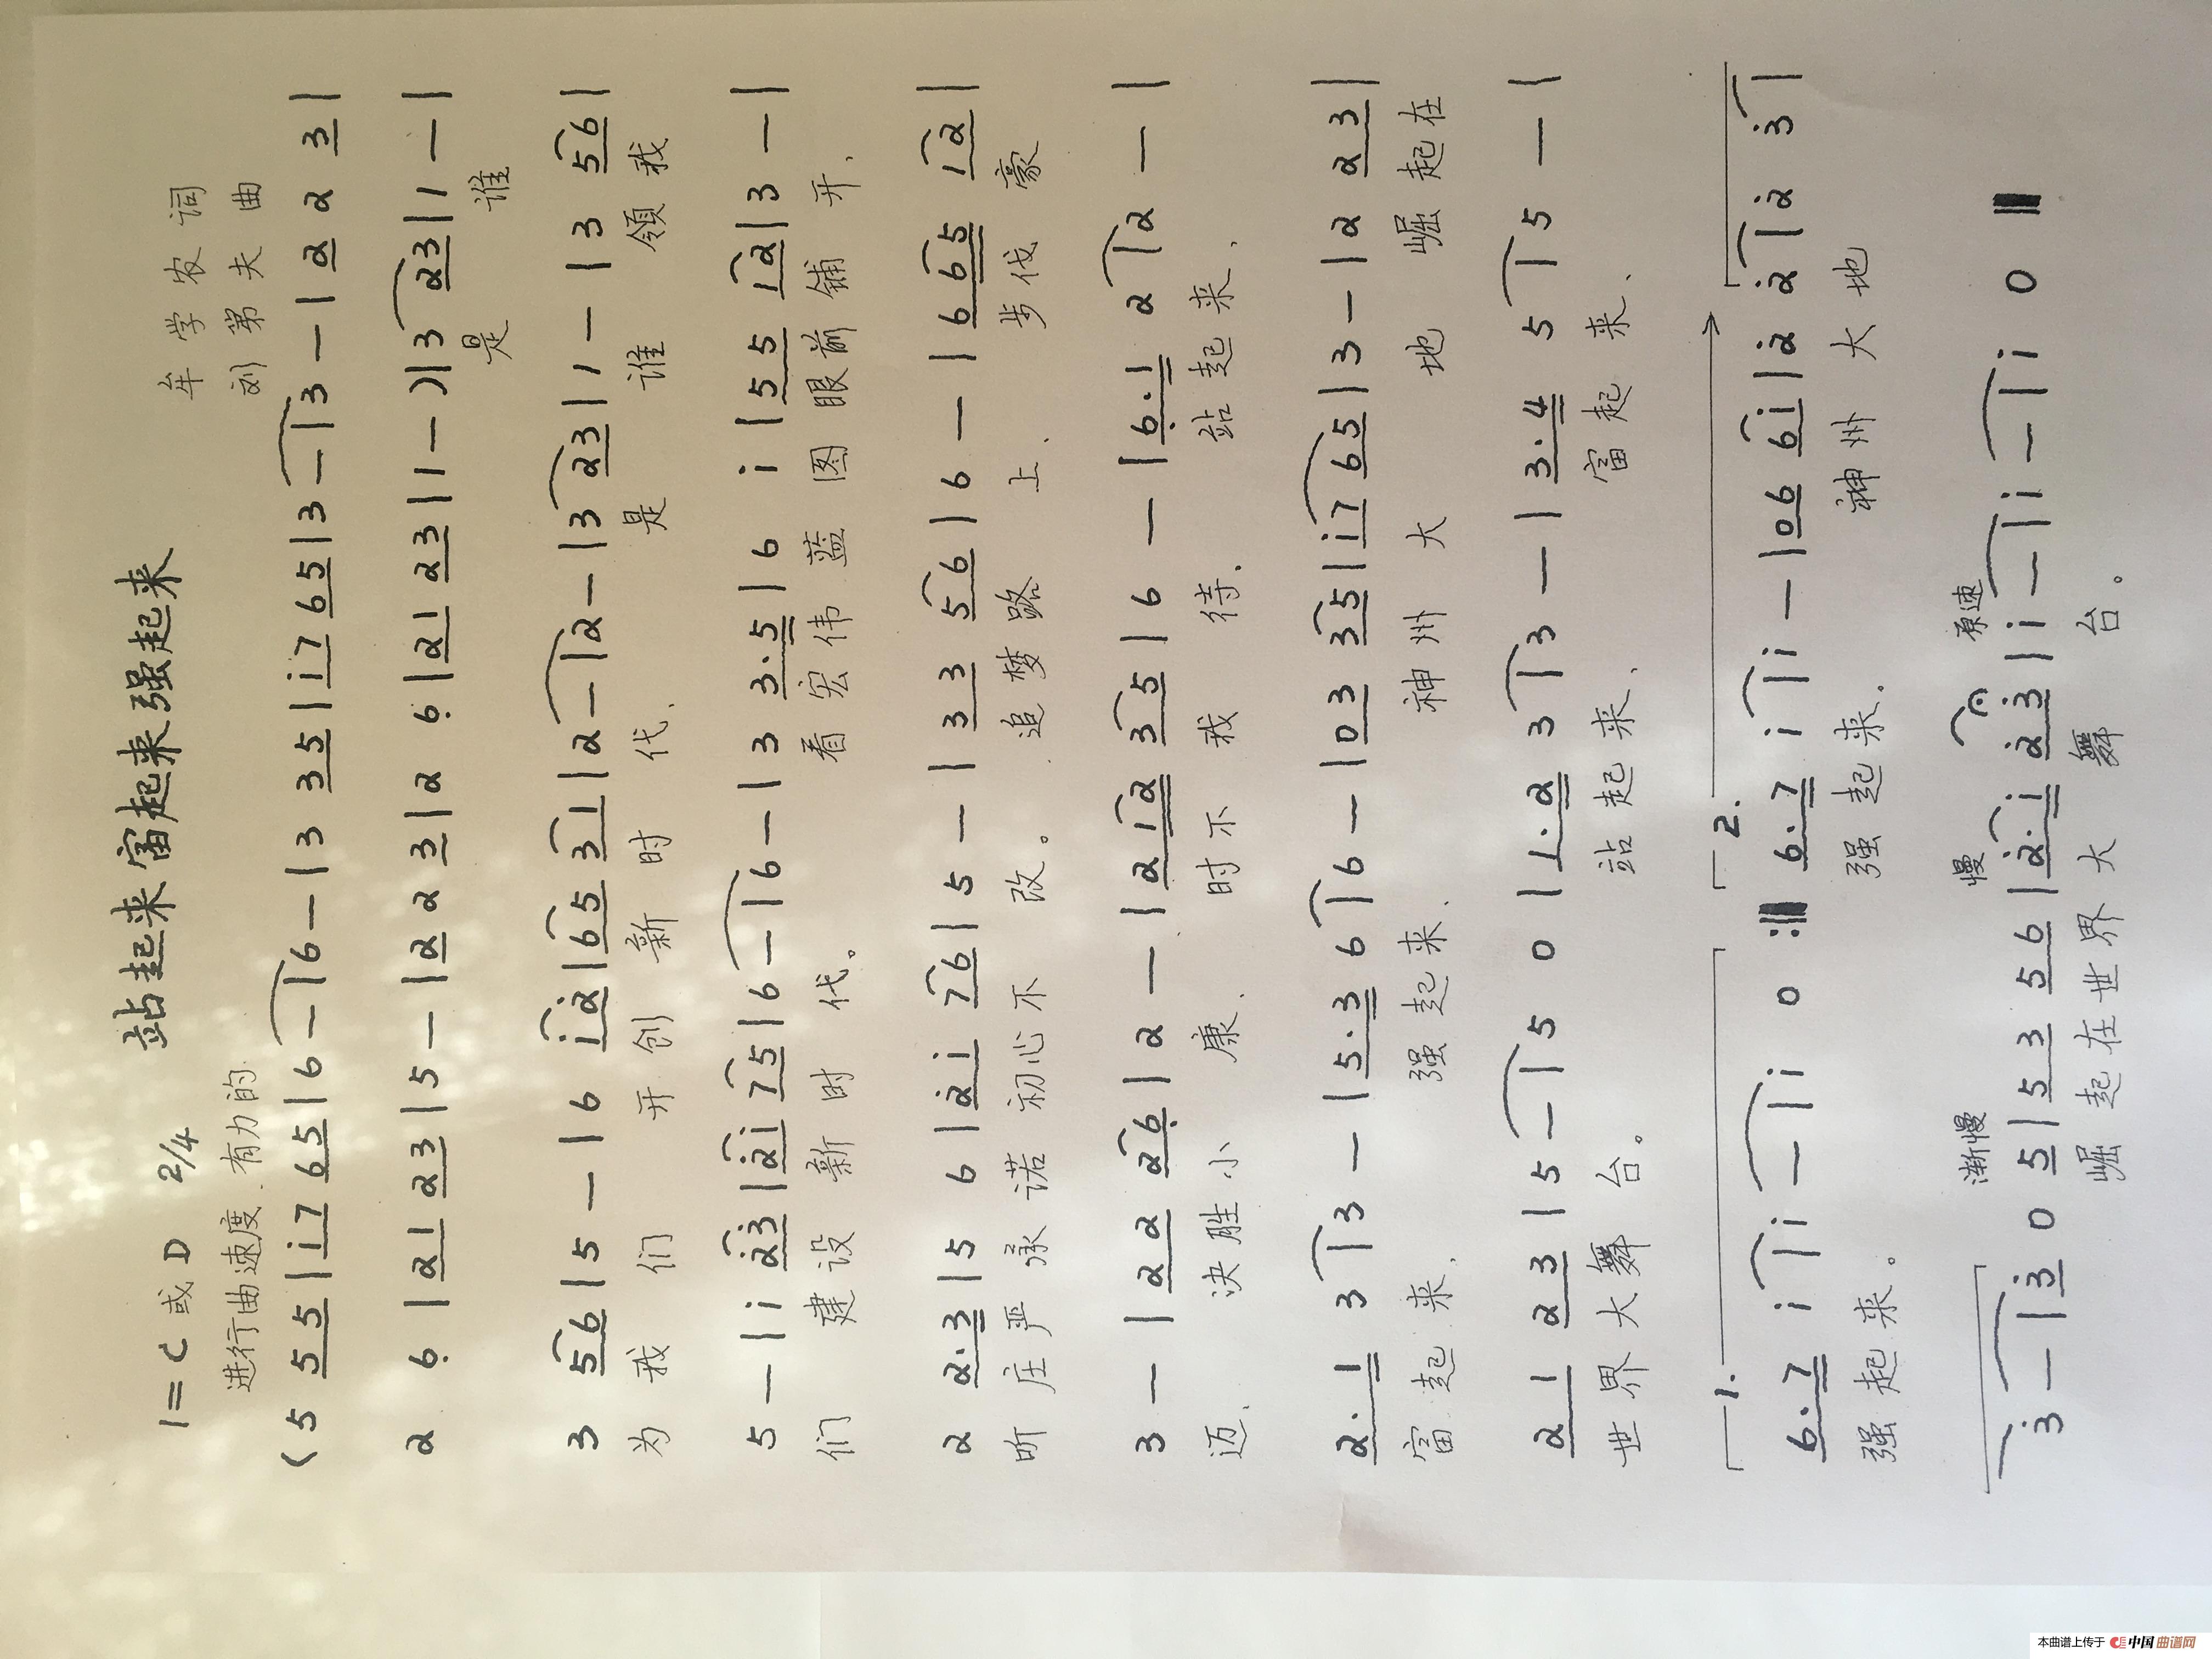 站起来富起来强起来
1=C或D 2/4 牟学农 词
进行曲速度、有力的 刘第夫 曲
(5 5 5 | i 7 6 5 | 6 — | 6 — | 3 3 5 | i 7 6 5 | 3 — | 3 — | 2 2 3 |
2 6 | 2 1 2 3 | 5 — | 2 2 3 | 2 6 | 2 1 2 3 | 1 — ) | 3 2 3 | 1 — |
是 谁
3 5 6 | 5 — | 6 i 2 | 6 5 3 1 | 2 — | 2 — | 3 2 3 | 1 — | 3 5 6 |
为 我 们 开 创 新 时 代、 是 谁 领 我
5 — | i 2 3 | 2 i 7 5 | 6 — | 6 — | 3 3·5 | 6 i | 5 5 1 2 | 3 — |
们 建 设 新 时 代。 看 宏伟 蓝 图 眼前 铺 开、
2 2·3 | 5 6 | 2 i 7 6 | 5 — | 3 3 5 6 | 6 — | 6 6 5 1 2 |
听 庄严 承 诺 初心不 改。 追梦 路 上、 步伐 豪
3 — | 2 2 2 6 | 2 — | 2 1 2 3 5 | 6 — | 6·1 2 | 2 — |
迈、 决胜 小 康、 时不 我 待、 站起来、
2·1 3 | 3 — | 5·3 6 | 6 — | 0 3 3 5 | i 7 6 5 | 3 — | 2 2 3 |
富起来、 强起来、 神州 大 地 崛起在
2 1 2 3 | 5 — | 5 0 | 1·2 3 | 3 — | 3·4 5 | 5 — |
世界大舞 台。 站起来、 富起来、
1. 2.
6·7 i | i — | i 0 :‖ 6·7 i | i — | 0 6 6 i | 2 2 | 2 3 |
强起来。 强起来、 神州 大地
渐慢 慢 原速
3 — | 3 0 5 | 5 3 5 6 | 2·i 2 3 | i — | i — | i 0 ‖
崛 起在世界 大 舞 台。
本曲谱上传于 中国曲谱网